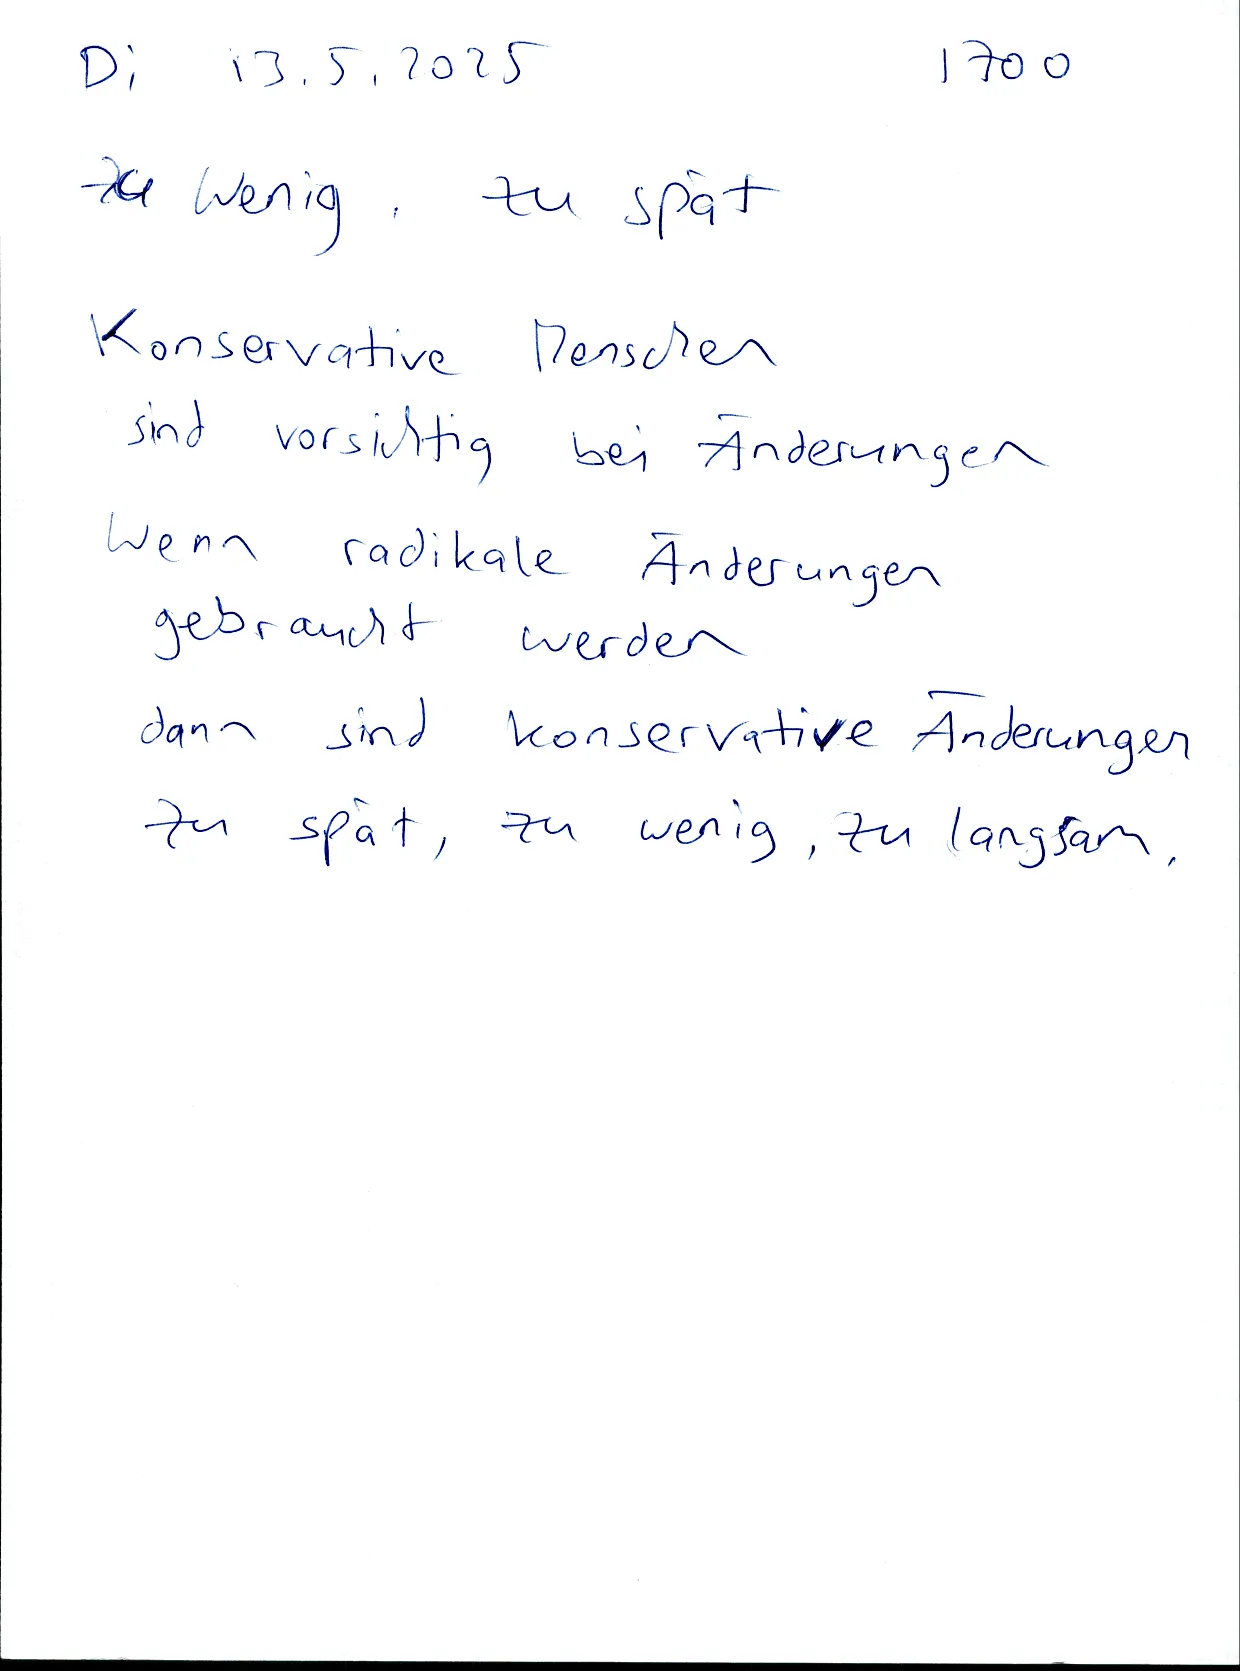 Di 13.5.2025 1700
zu wenig, zu spät
Konservative Menschen
sind vorsichtig bei Änderungen
Wenn radikale Änderungen
gebraucht werden
dann sind konservative Änderungen
zu spät, zu wenig, zu langsam.